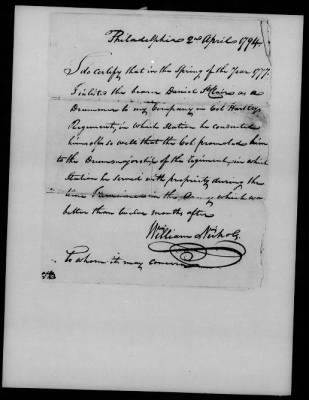 Philadelphia 2nd April 1794
I do certify that in the Spring of the Year 177
I inlisted the bearer Daniel St Clair as a
Drummer to my Company in Col Hartley
Regiment, in which Station he conducted
himself so well that the Col promoted him
to the Drum-majorship of the Regiment, in which
Station he served with propriety during the
time I remained in the Army which was
better than twelve months after
William Nichols
To whom it may concern